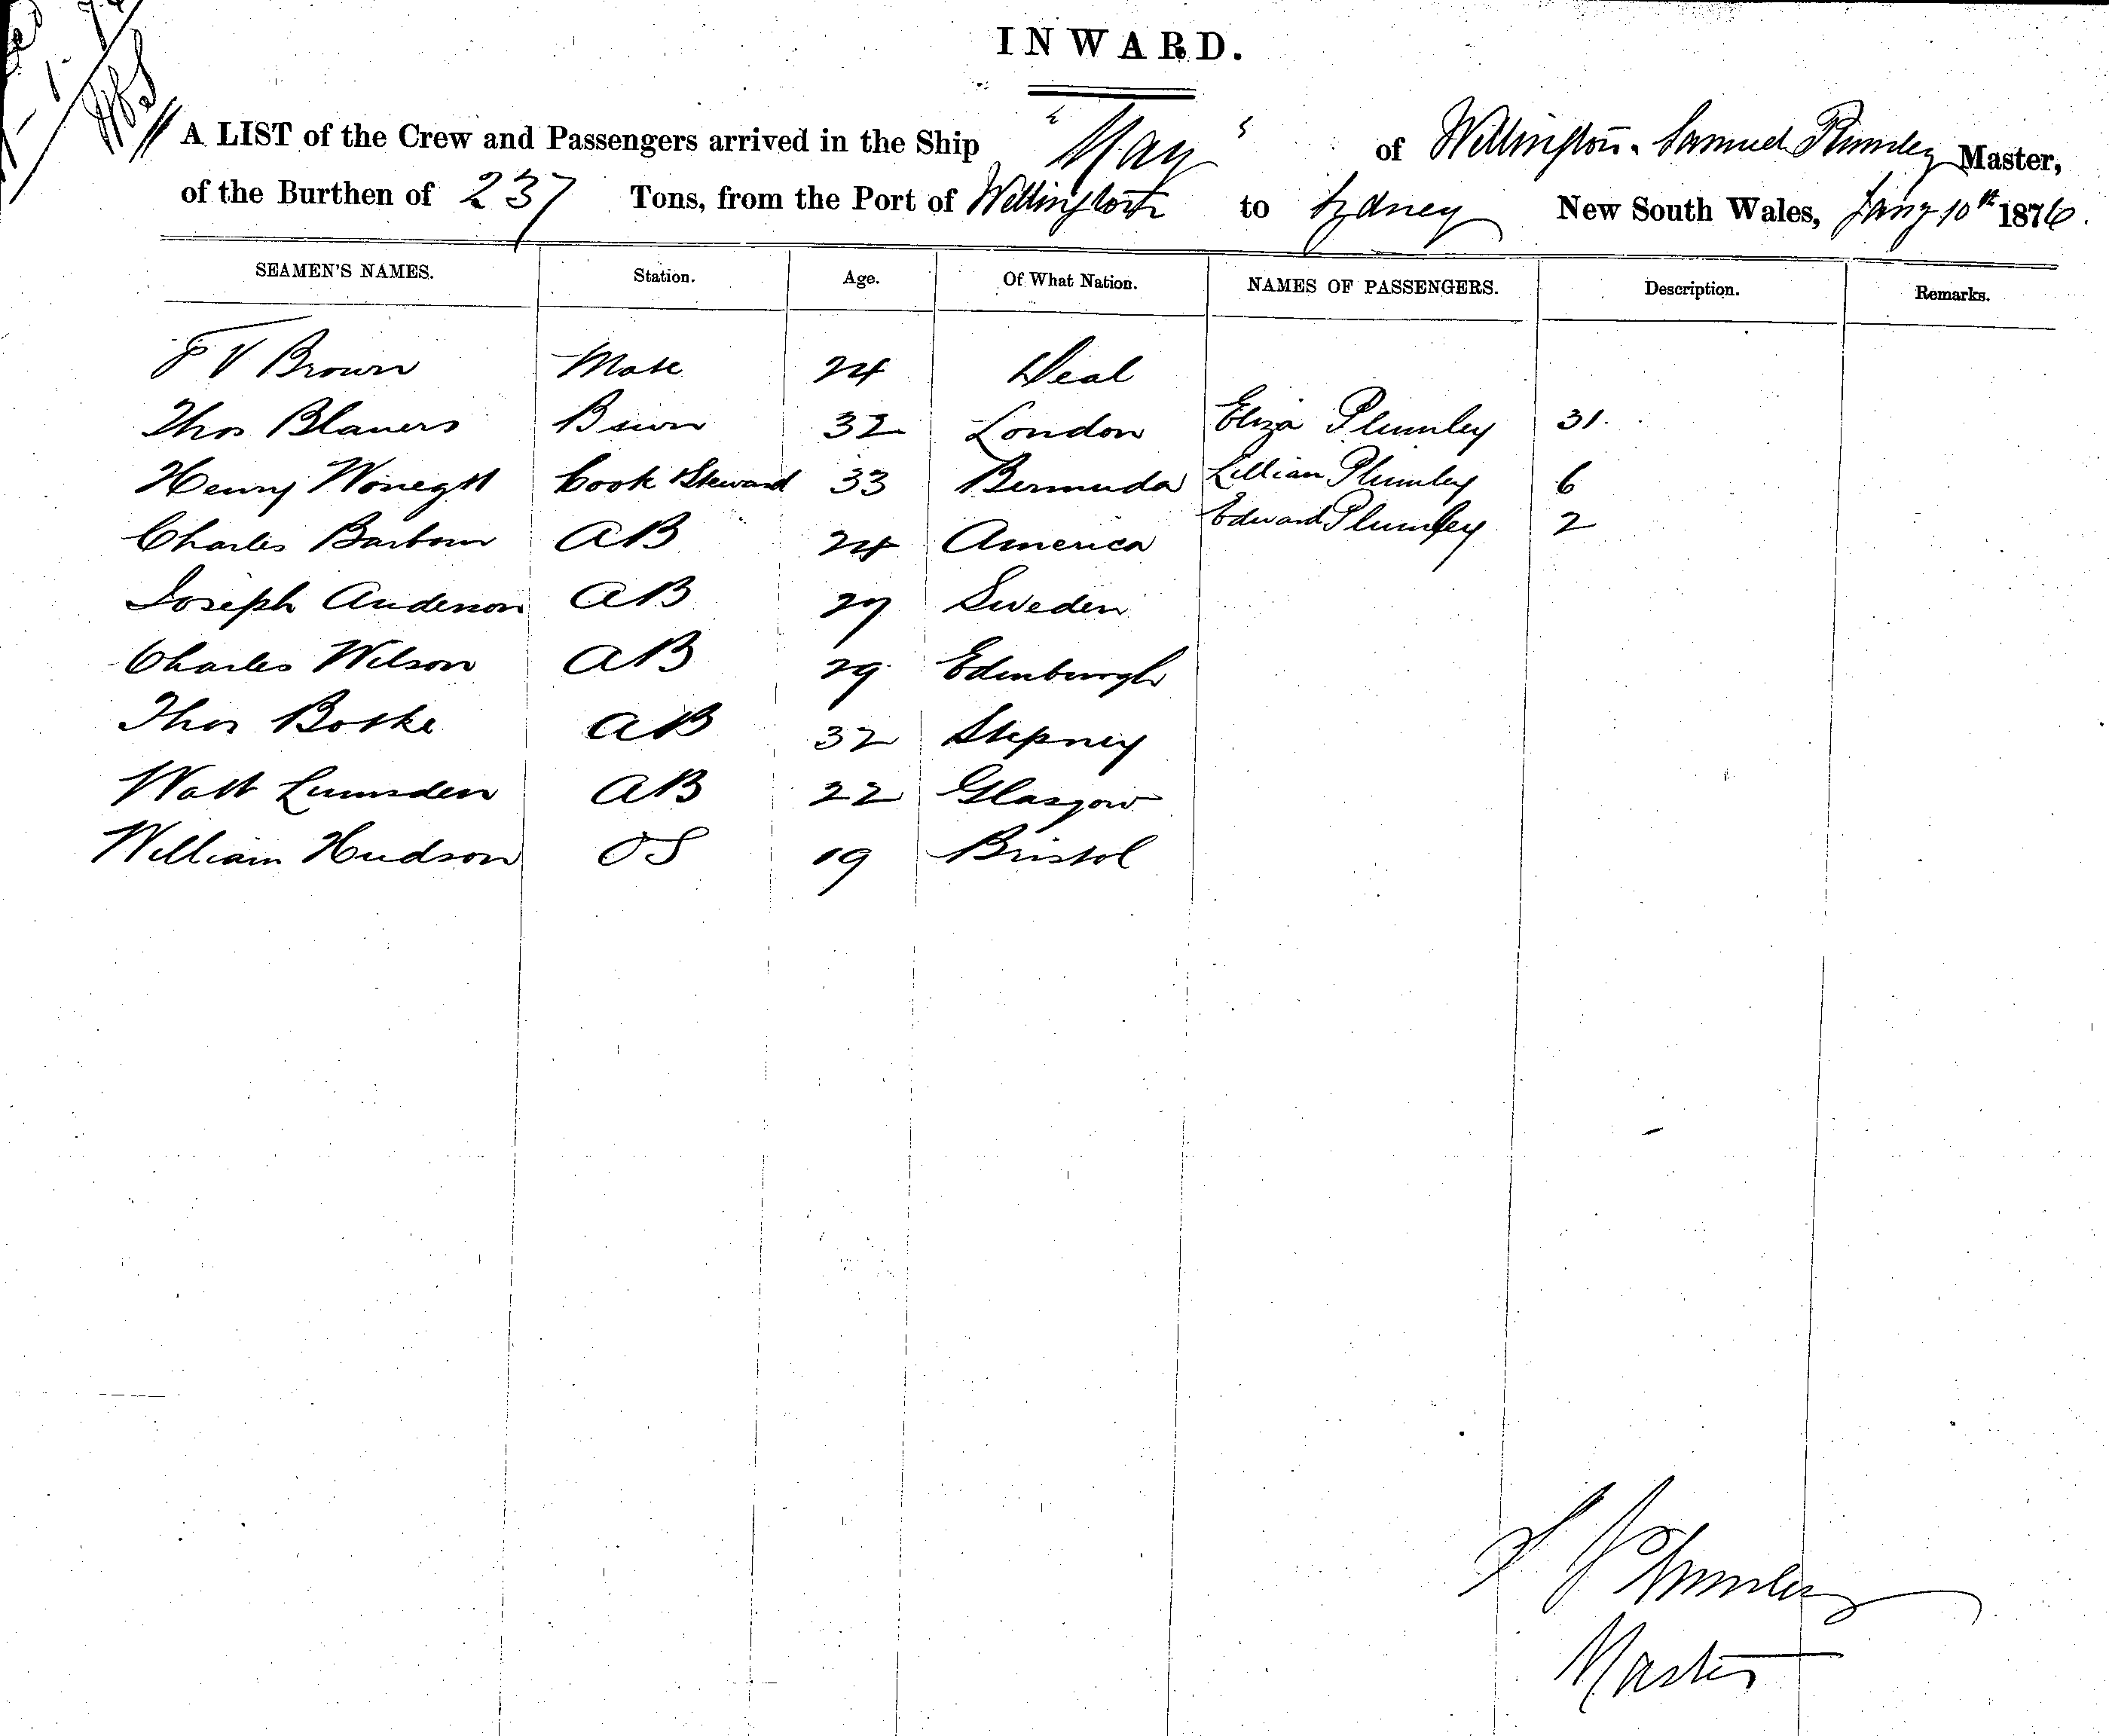 INWARD.
A LIST of the Crew and Passengers arrived in the Ship "May" of Wellington. Samuel Plumley Master,
of the Burthen of 237 Tons, from the Port of Wellington to Sydney New South Wales, Jany 10th 1876.
SEAMEN'S NAMES. Station. Age. Of What Nation. NAMES OF PASSENGERS. Description. Remarks.
V Brown Mate 24 Deal
Thos Bsun 32 London Eliza Plumley 31.
Henry Cook Steward 33 Bermuda Lillian Plumley 6
Charles Barbour AB 24 America Edward Plumley 2
Joseph Anderson AB 27 Sweden
Charles Wilson AB 29 Edinburgh
Thos Bothe AB 32 Stepney
Watt Lumsden AB 22 Glasgow
William Hudson OS 19 Bristol
S Plumley
Master